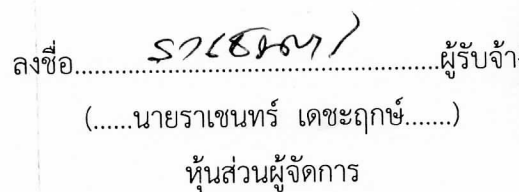 ลงชื่อ......................................................ผู้รับจ้าง
(......นายราเชนทร์ เดชะฤกษ์.......)
หุ้นส่วนผู้จัดการ